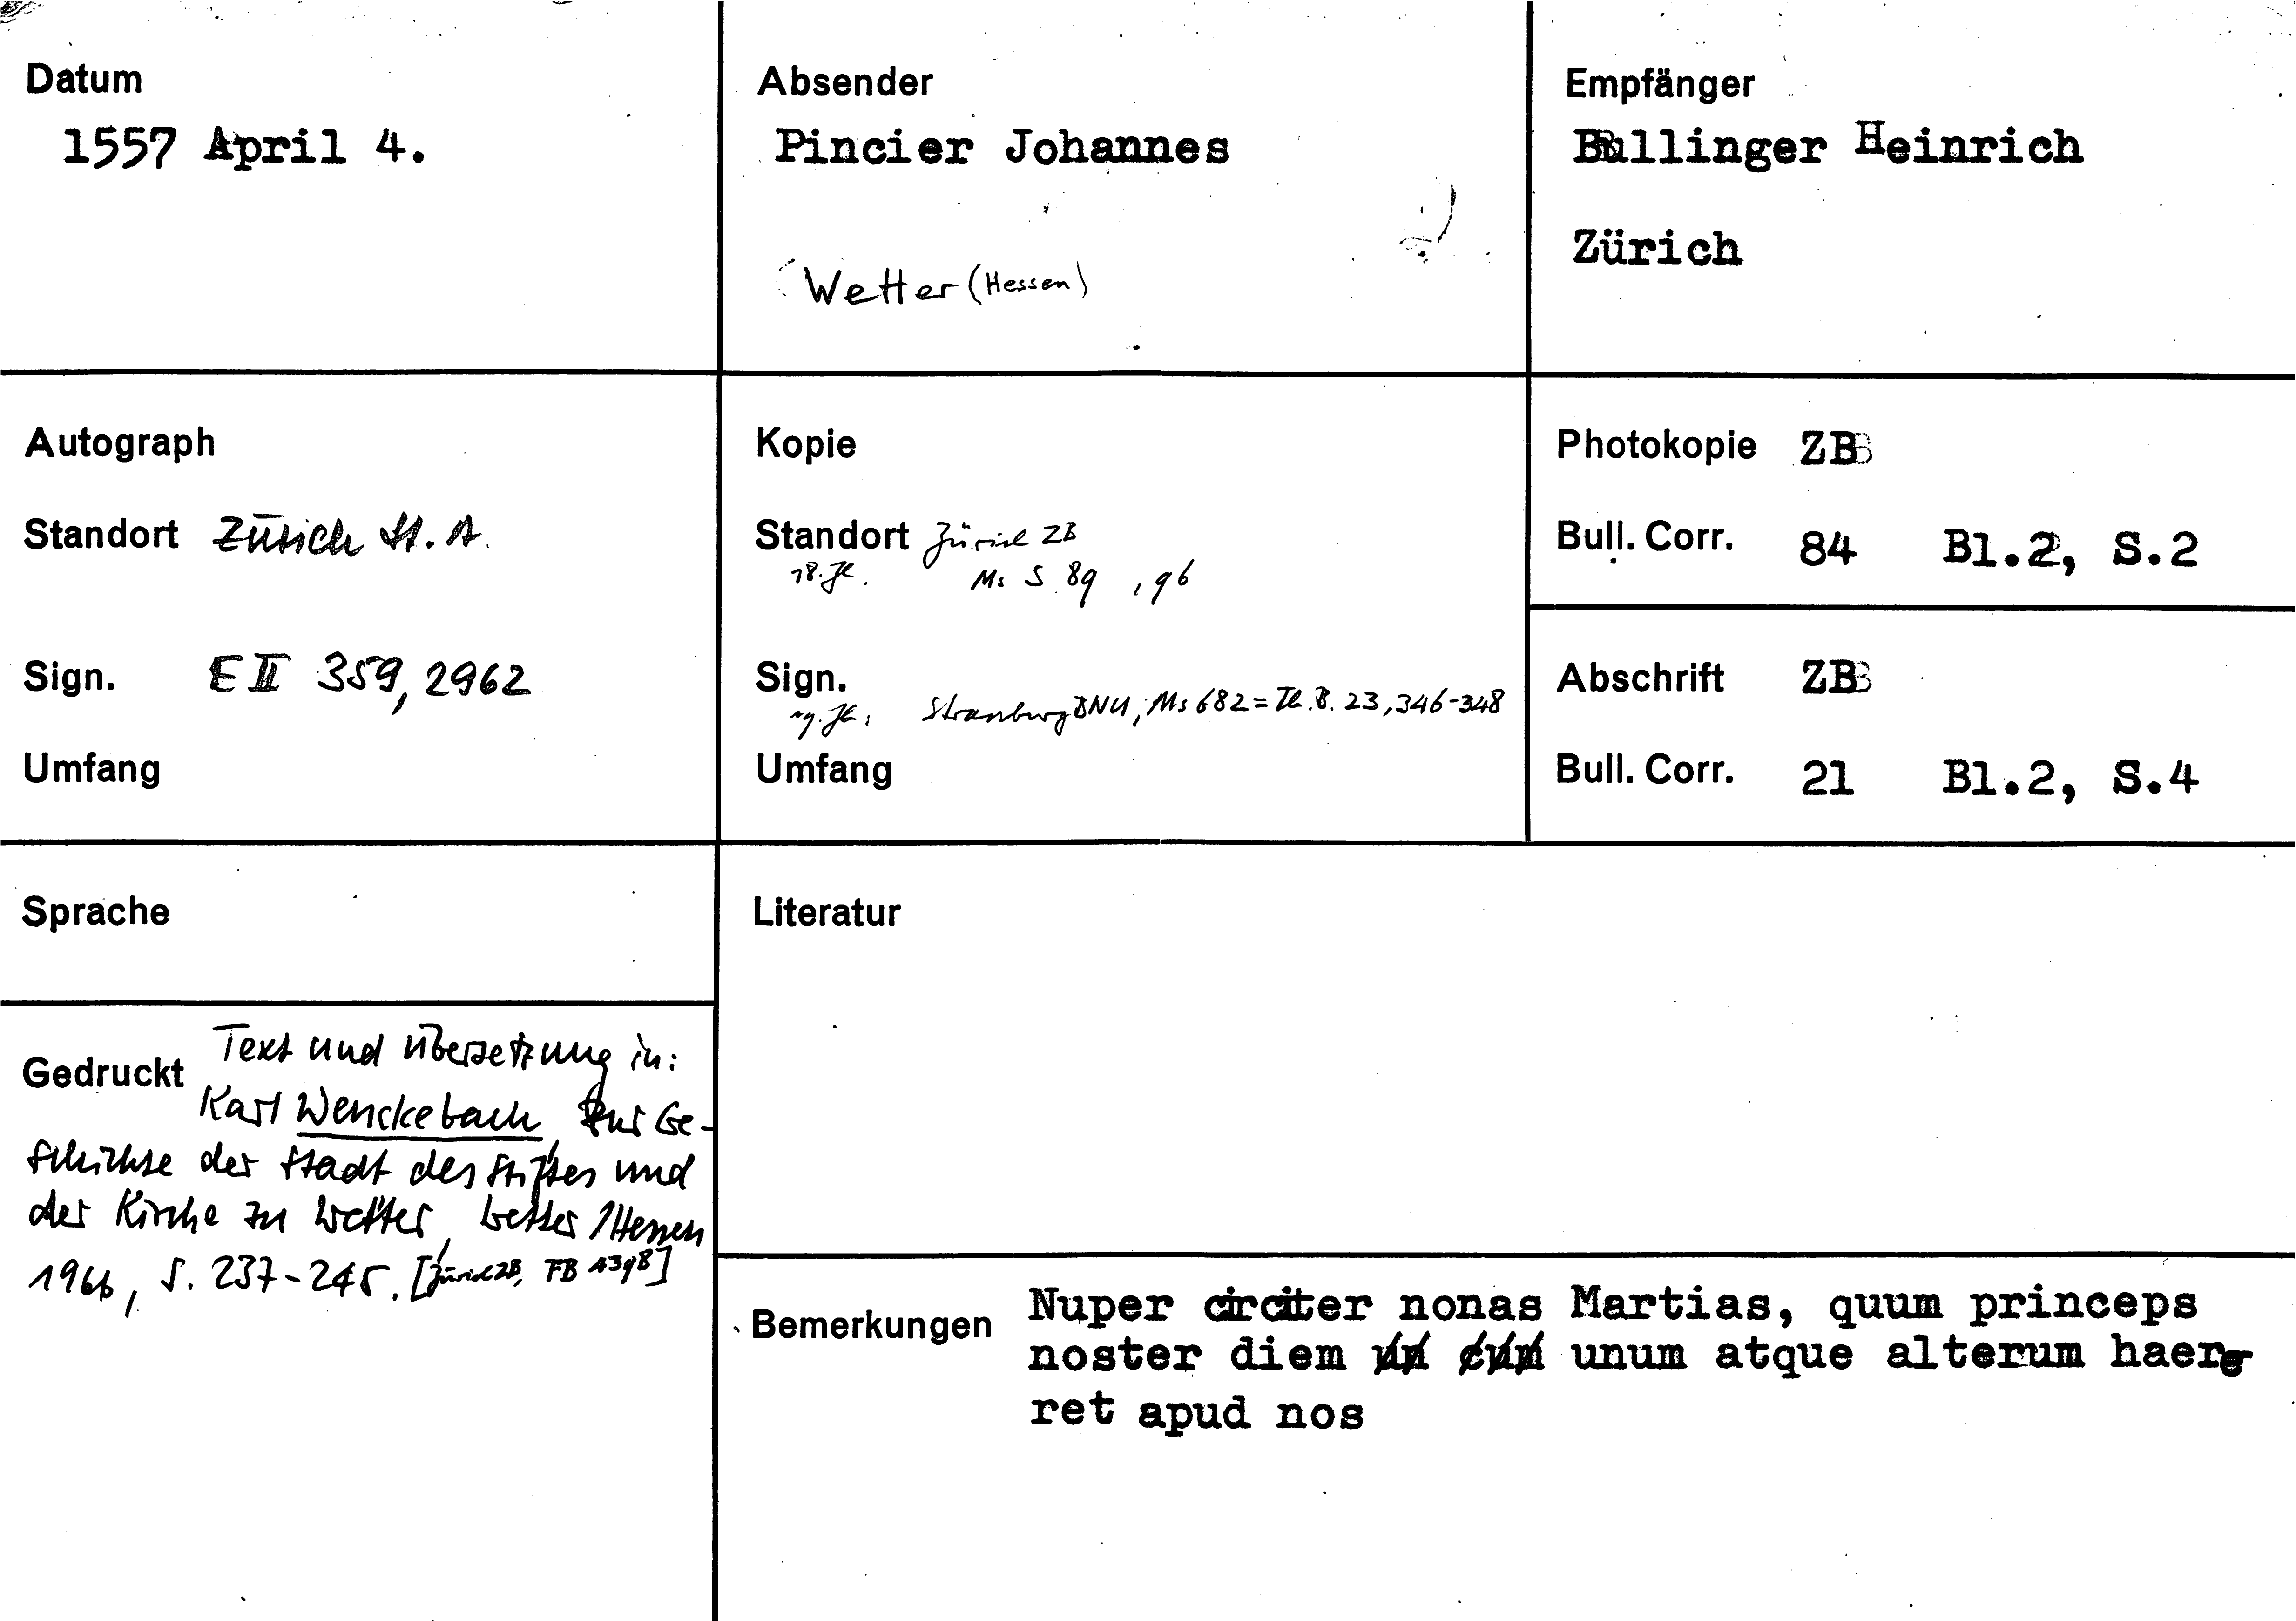 Datum
1557 April 4.
Absender
Pincier Johannes
Wetter (Hessen)
Empfänger
Bullinger Heinrich
Zürich
Autograph
Standort Zürich St. A.
Sign. E II 359, 2962
Umfang
Kopie
Standort Zürich ZB
18. Jh. Ms S 89, 96
Sign.
19. Jh.: Strassburg BNU, Ms 682 = Th. B. 23, 346-348
Umfang
Photokopie ZB
Bull. Corr. 84 Bl.2, S.2
Abschrift ZB
Bull. Corr. 21 Bl.2, S.4
Sprache
Literatur
Gedruckt Text und Übersetzung in:
Karl Wenckebach, Zur Ge-
schichte der Stadt des Stiftes und
der Kirche zu Wetter, Wetter/Hessen
1966, S. 237-245. [Zürich ZB, FB 4398]
Bemerkungen Nuper circiter nonas Martias, quum princeps
noster diem un cum unum atque alterum haere
ret apud nos